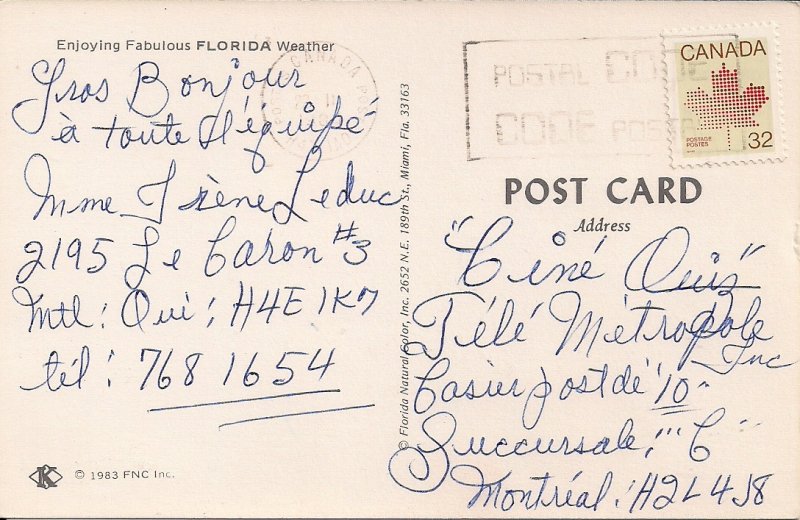 Enjoying Fabulous FLORIDA Weather
Gros Bonjour
à toute l'équipé
Mme Irène Leduc
2195 Le Caron #3
Mtl: Qué: H4E 1K7
tél: 768 1654
K
© 1983 FNC Inc.
© Florida Natural Color, Inc. 2652 N.E. 189th St., Miami, Fla. 33163
CANADA
POSTAL CODE
CODE POSTAL
CANADA
POSTAGE
POSTES
32
POST CARD
Address
"Ciné Quiz"
Télé Métropole
Inc
Casier postal "10"
Succursale: "C"
Montréal: H2L 4J8